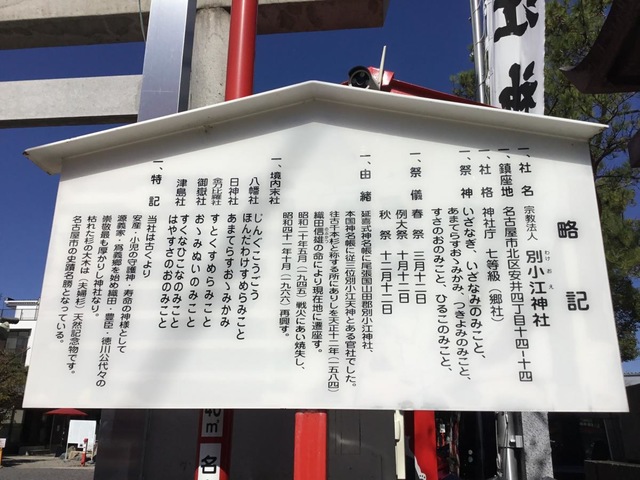 略記
一、社名 宗教法人 別小江神社
わけ お え
一、鎮座地 名古屋市北区安井四丁目十四ー十四
一、社格 神社庁 七等級（郷社）
一、祭神 いざなぎ、いざなみのみこと、
あまてらすおゝみかみ、つきよみのみこと、
すさのおのみこと、ひるこのみこと、
一、祭儀 春祭 三月十二日
例大祭 十月十二日
秋祭 十二月十二日
一、由緒 延喜式神名帳に尾張国山田郡別小江神社、
本国神名帳に従三位別小江天神とある官社でした。
往古千本杉と称する所にありしを天正十二年（一五八四）
織田信雄の命により現在地に遷座す。
昭和二十年五月（一九四五）戦火にあい焼失し、
昭和四十一年十月（一九六六）再興す。
一、境内末社 じんぐこうごう
八幡社 ほんだわけすめらみこと
日神社 あまてらすおゝみかみ
金刀比羅社 すとくすめらみこと
御嶽社 おゝみぬいのみこと
すくなひこなのみこと
津島社 はやすさのおのみこと
一、特記 当社は古くより
安産・小児の守護神、寿命の神様として
源義家・為義郷を始め織田・豊臣・徳川公代々の
崇敬最も厚かりし神社なり。
枯れた杉の大木は（夫婦杉）天然記念物です。
名古屋市の史蹟名勝となっている。
江神
40m
名